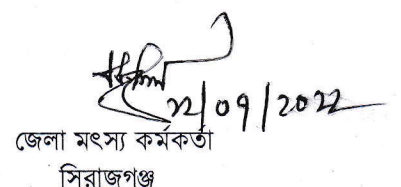 22/09/2022
জেলা মৎস্য কর্মকর্তা
সিরাজগঞ্জ